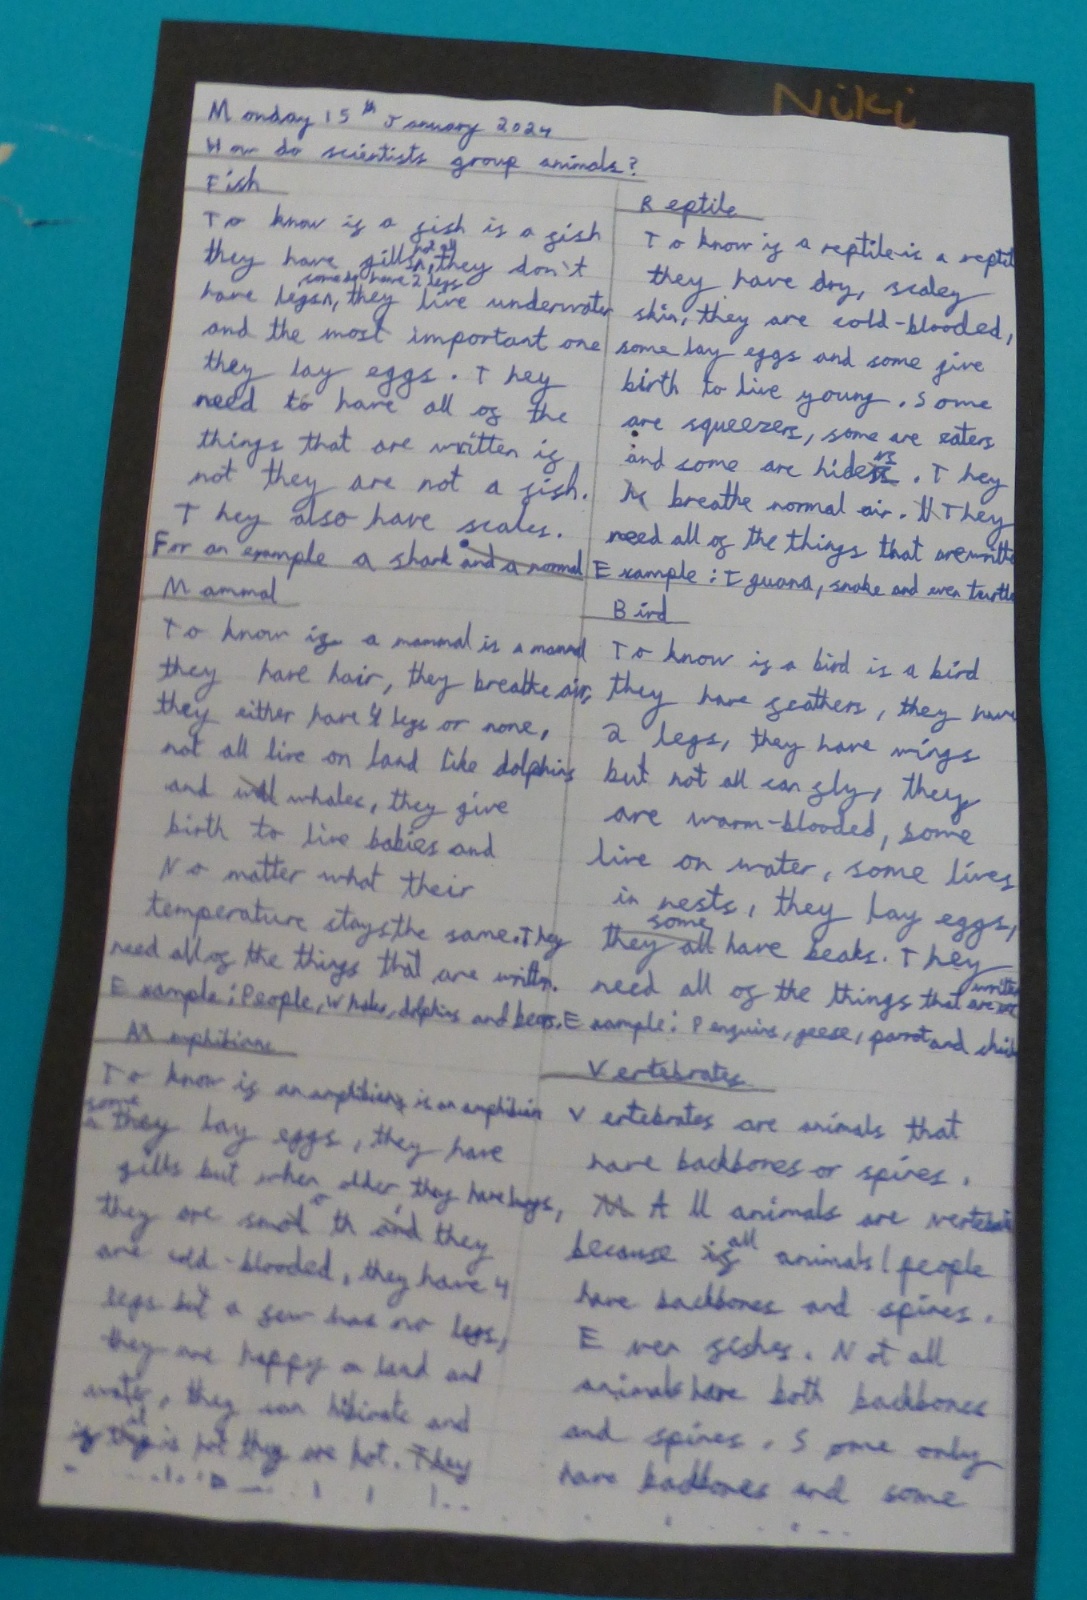 Niki
Monday 15th January 2024
How do scientists group animals?
Fish
To know if a fish is a fish
they have gills not all, they don't
have legs some have 2 legs, they live underwater
and the most important one
they lay eggs. They
need to have all of the
things that are written if
not they are not a fish.
They also have scales.
For an example a shark and a normal
Mammal
To know if a mammal is a mammal
they have hair, they breathe air,
they either have 4 legs or none,
not all live on land like dolphins
and whales, they give
birth to live babies and
No matter what their
temperature stays the same. They
need all of the things that are written.
Example: People, Whales, dolphins and bears.
Amphibians
To know if an amphibians is an amphibian
some they lay eggs, they have
gills but when older, they have lungs,
they are smooth and they
are cold-blooded, they have 4
legs but a few has no legs,
they are happy on land and
water, they can hibinate and
if is hot they are hot. They
Reptile
To know if a reptile is a reptil
they have dry, scaley
skin, they are cold-blooded,
some lay eggs and some give
birth to live young. Some
are squeezers, some are eaters
and some are hiders. They
breathe normal air. They
need all of the things that are writte
Example: Iguana, snake and even turtle
Bird
To know if a bird is a bird
they have feathers, they have
2 legs, they have wings
but not all can fly, they
are warm-blooded, some
live on water, some lives
in nests, they lay eggs,
they some all have beaks. They
need all of the things that are written
Example: Penguins, geese, parrot and chick
Vertebrates
Vertebrates are animals that
have backbones or spines.
All animals are vertebrate
because if all animals/people
have backbones and spines.
Even fishes. Not all
animals have both backbones
and spines. Some only
have backbones and some